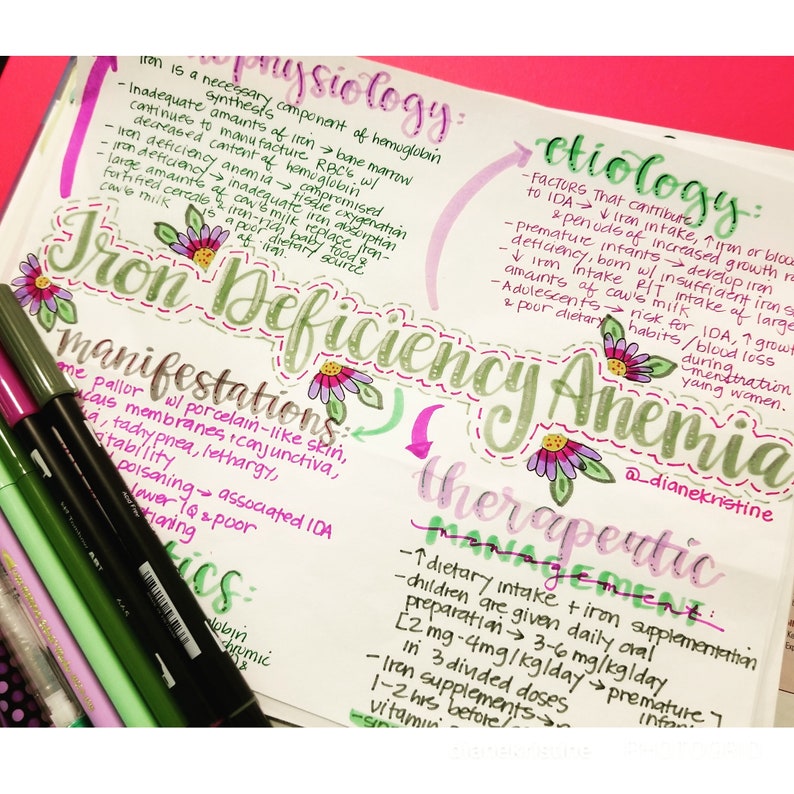 physiology:
Iron is a necessary component of hemoglobin
synthesis
- Inadequate amounts of iron → bone marrow
continues to manufacture RBC's w/
decreased content of hemoglobin
- Iron deficiency anemia → compromised
tissue oxygenation
- Iron deficiency → inadequate iron absorption
large amounts of cow's milk replace iron-
fortified cereals & iron-rich baby food &
cow's milk is a poor dietary source
of iron.
etiology:
- FACTORS that contribute
to IDA → ↓ iron intake, ↑ iron or blood
& periods of increased growth
- premature infants → develop iron
deficiency, born w/ insufficient iron
- ↓ iron intake R/T intake of large
amounts of cow's milk
- Adolescents → risk for IDA, ↑
& poor dietary habits / blood loss
during
menstruation
young women.
Iron Deficiency Anemia
@_dianekristine
manifestations:
pallor w/ porcelain-like skin,
membranes & conjunctiva,
tachypnea, lethargy,
poisoning → associated IDA
lower IQ & poor
therapeutic
MANAGEMENT
management:
- ↑ dietary intake + iron supplementation
- children are given daily oral
preparation → 3-6 mg/kg/day
[2 mg-4mg/kg/day → premature
infants
in 3 divided doses
- Iron supplements →
1-2 hrs before/
vitamin
chronic
dianekristine
PHOTOGRID